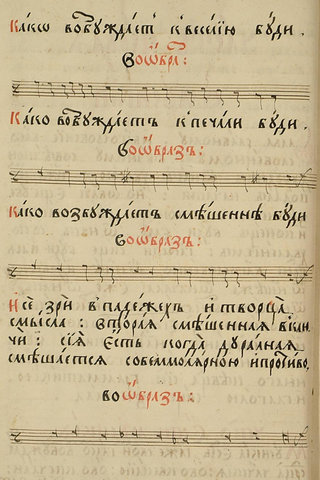 Како возбꙋждаетъ к̾веселїю бꙋди.
Воѡбра:
Како возбꙋждаетъ к̾печали бꙋди.
Воѡбразъ:
Како возбꙋждаетъ смѣшеннѣ бꙋди
воѡбразъ:
И сѐ зри в̾падежехъ и творца
смысла: вторая смѣшенная
чи: сїѧ есть когда дꙋралная
смѣшается и противо,
воѡбразъ: